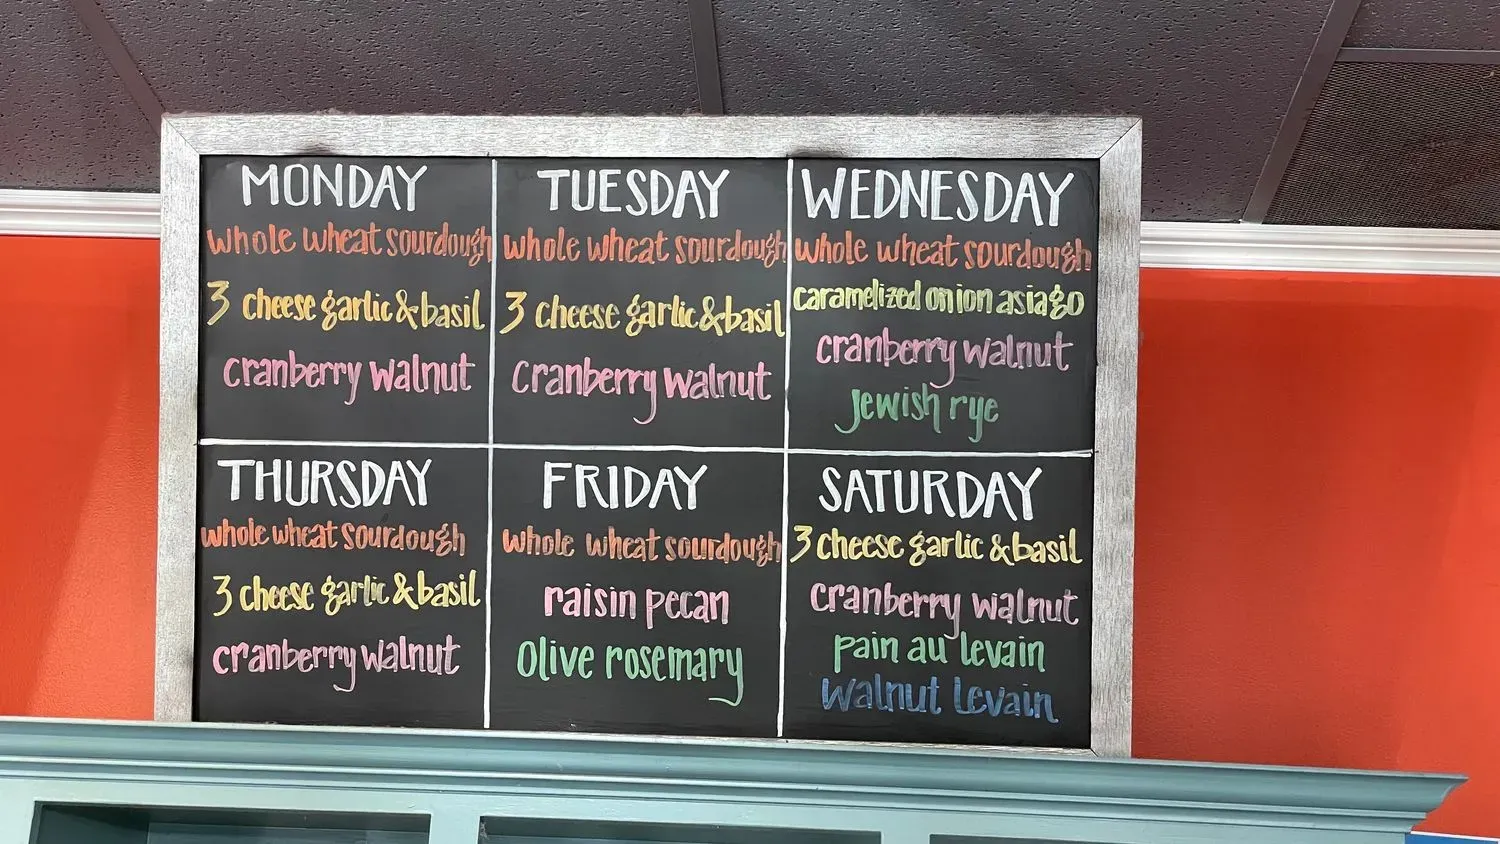 MONDAY
whole wheat sourdough
3 cheese garlic & basil
cranberry walnut
TUESDAY
whole wheat sourdough
3 cheese garlic & basil
cranberry walnut
WEDNESDAY
whole wheat sourdough
caramelized onion asiago
cranberry walnut
Jewish rye
THURSDAY
whole wheat sourdough
3 cheese garlic & basil
cranberry walnut
FRIDAY
whole wheat sourdough
raisin pecan
Olive rosemary
SATURDAY
3 cheese garlic & basil
cranberry walnut
pain au levain
walnut levain